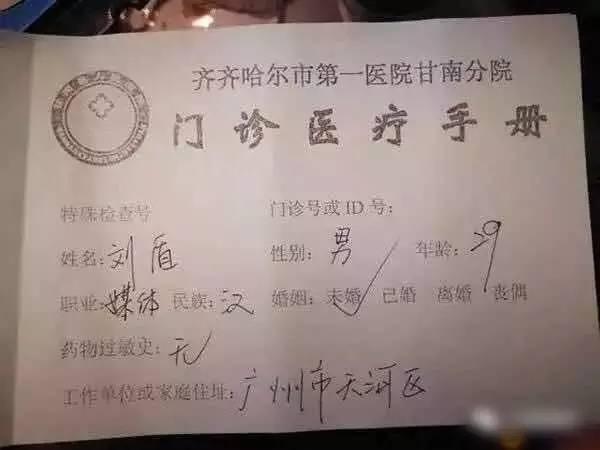 齐齐哈尔市第一医院甘南分院
门诊医疗手册
特殊检查号 门诊号或ID号:
姓名:刘盾 性别:男 年龄:29
职业:媒体 民族:汉 婚姻:未婚✓ 已婚 离婚 丧偶
药物过敏史:无
工作单位或家庭住址:广州市天河区